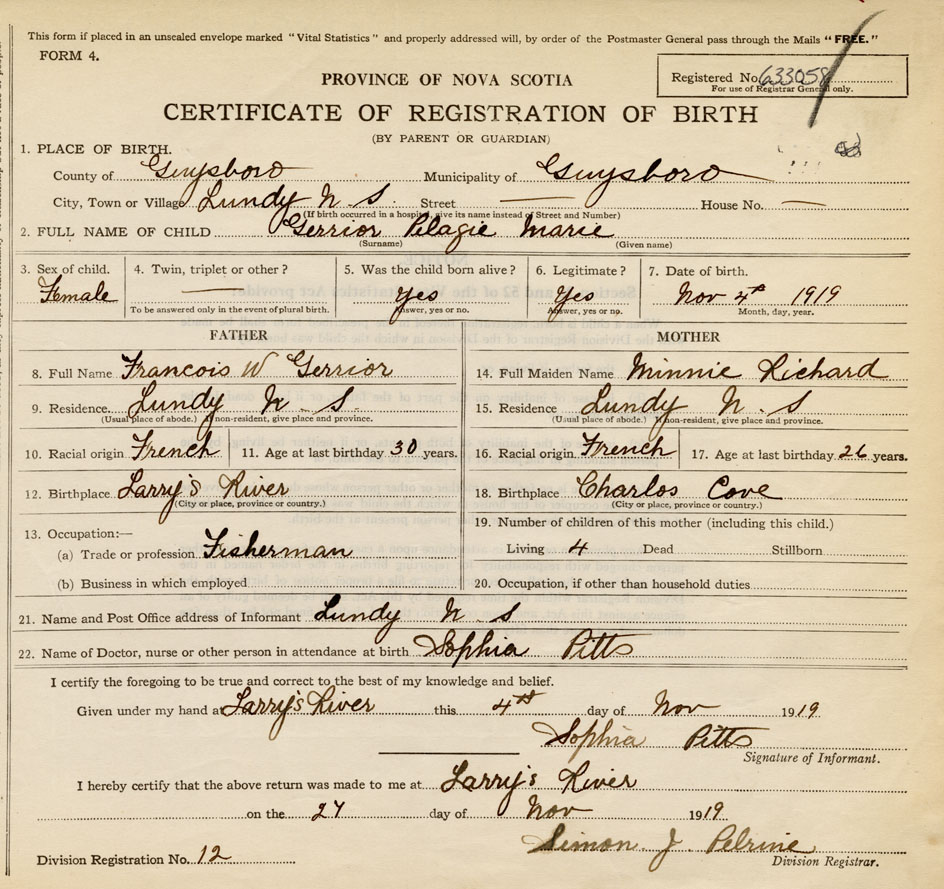 This form if placed in an unsealed envelope marked "Vital Statistics" and properly addressed will, by order of the Postmaster General pass through the Mails "FREE."
FORM 4.
PROVINCE OF NOVA SCOTIA
Registered No. 633058
For use of Registrar General only.
CERTIFICATE OF REGISTRATION OF BIRTH
(BY PARENT OR GUARDIAN)
1. PLACE OF BIRTH.
County of Guysboro Municipality of Guysboro
City, Town or Village Lundy N. S. Street — House No. —
(If birth occurred in a hospital, give its name instead of Street and Number)
2. FULL NAME OF CHILD Gerrior Pelagie Marie
(Surname) (Given name)
3. Sex of child. 4. Twin, triplet or other? 5. Was the child born alive? 6. Legitimate? 7. Date of birth.
Female — Yes Yes Nov 4th 1919
To be answered only in the event of plural birth. Answer, yes or no. Answer, yes or no. Month, day, year.
FATHER MOTHER
8. Full Name Francois W Gerrior 14. Full Maiden Name Minnie Richard
9. Residence. Lundy N. S. 15. Residence Lundy N. S
(Usual place of abode.) If non-resident, give place and province. (Usual place of abode.) If non-resident, give place and province.
10. Racial origin French 11. Age at last birthday 30 years. 16. Racial origin French 17. Age at last birthday 26 years.
12. Birthplace Larry's River 18. Birthplace Charlos Cove
(City or place, province or country.) (City or place, province or country.)
13. Occupation:— 19. Number of children of this mother (including this child.)
(a) Trade or profession Fisherman Living 4 Dead Stillborn
(b) Business in which employed 20. Occupation, if other than household duties
21. Name and Post Office address of Informant Lundy N S
22. Name of Doctor, nurse or other person in attendance at birth Sophia Pitts
I certify the foregoing to be true and correct to the best of my knowledge and belief.
Given under my hand at Larry's River this 4th day of Nov 1919
Sophia Pitts
Signature of Informant.
I hereby certify that the above return was made to me at Larry's River
on the 27 day of Nov 1919
Simon J. Pelrine
Division Registration No. 12 Division Registrar.